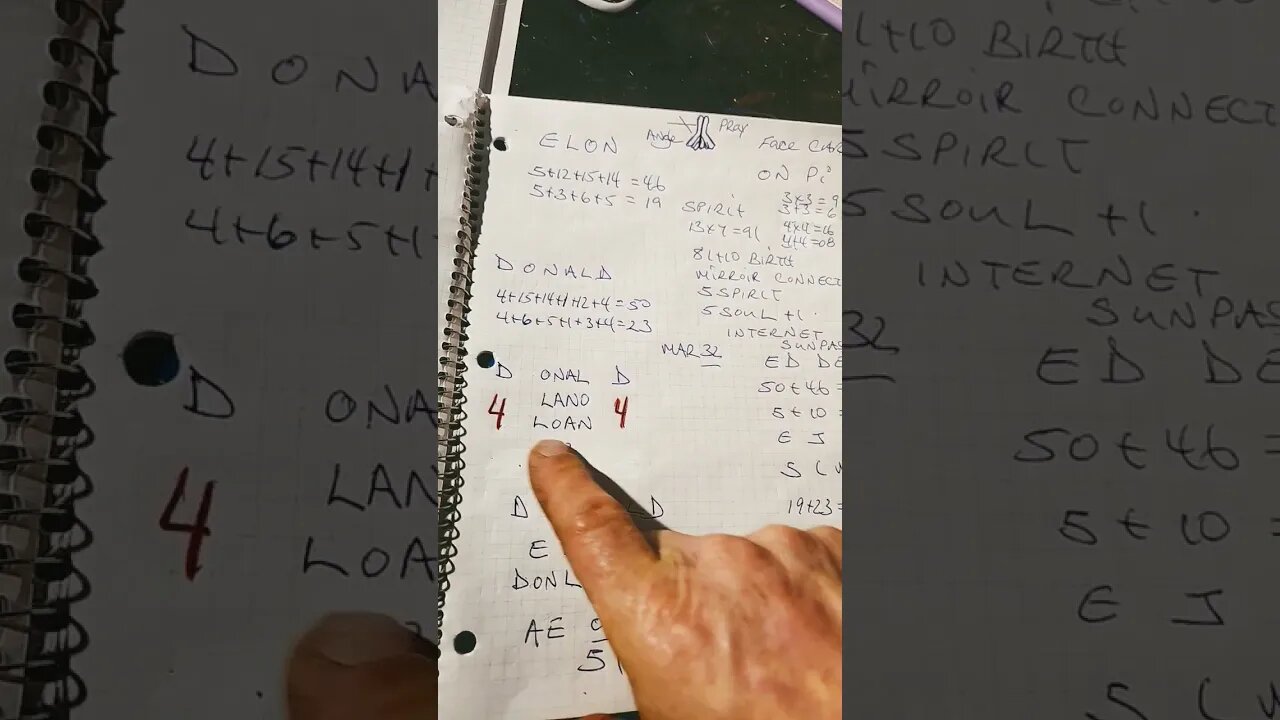 ELON
5+12+15+14 = 46
5+3+6+5 = 19
DONALD
4+15+14+1+12+4=50
4+6+5+1+3+4=23
D ONAL D
4 LANO 4
LOAN
D D
E
DONL
AE
5
Angle Pray
ON Pi
3×3=9
3+3=6
SPIRIT
4×4=16
13×7=91
4+4=08
81+10 BIRTH
MIRROIR CONNECT
5 SPIRIT
5 SOUL +1.
INTERNET
SUNPAS
MAR 32
ED DE
50+46=
5+10=
E J
19+23=